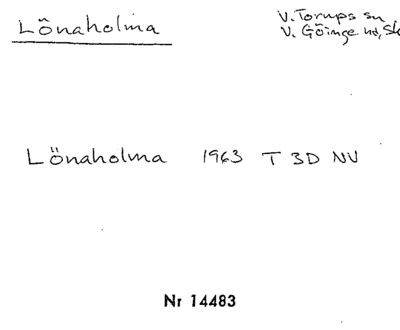 Lönaholma
V. Torups sn,
V. Göinge hd, Sk
Lönaholma 1963 T 3D NV
Nr 14483